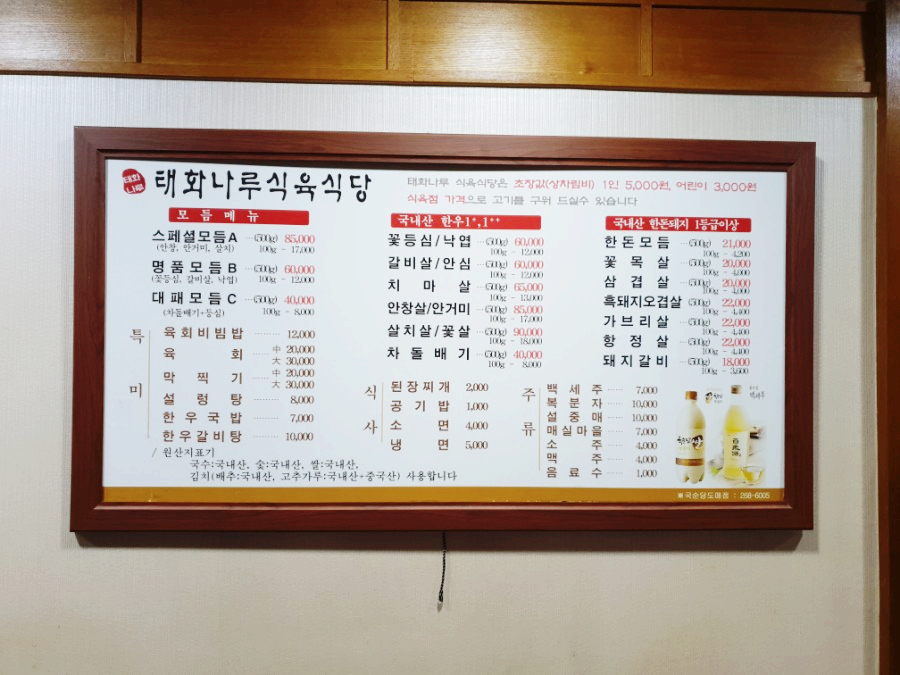 태화나루
태화나루식육식당
태화나루 식육식당은 초장값(상차림비) 1인 5,000원, 어린이 3,000원
식육점 가격으로 고기를 구워 드실수 있습니다
모듬메뉴
스페셜모듬A (500g) 85,000
(안창, 안거미, 살치) 100g - 17,000
명품모듬B (500g) 60,000
(꽃등심, 갈비살, 낙엽) 100g - 12,000
대패모듬C (500g) 40,000
(차돌배기+등심) 100g - 8,000
특미
육회비빔밥 12,000
육회 中 20,000
大 30,000
막찍기 中 20,000
大 30,000
설렁탕 8,000
한우국밥 7,000
한우갈비탕 10,000
국내산 한우1⁺,1⁺⁺
꽃등심/낙엽 (500g) 60,000
100g - 12,000
갈비살/안심 (500g) 60,000
100g - 12,000
치마살 (500g) 65,000
100g - 13,000
안창살/안거미 (500g) 85,000
100g - 17,000
살치살/꽃살 (500g) 90,000
100g - 18,000
차돌배기 (500g) 40,000
100g - 8,000
국내산 한돈돼지 1등급이상
한돈모듬 (500g) 21,000
100g - 4,200
꽃목살 (500g) 20,000
100g - 4,000
삼겹살 (500g) 20,000
100g - 4,000
흑돼지오겹살 (500g) 22,000
100g - 4,400
가브리살 (500g) 22,000
100g - 4,400
항정살 (500g) 22,000
100g - 4,400
돼지갈비 (500g) 18,000
100g - 3,600
식사
된장찌개 2,000
공기밥 1,000
소면 4,000
냉면 5,000
주류
백세주 7,000
복분자 10,000
설중매 10,000
매실마을 7,000
소주 4,000
맥주 4,000
음료수 1,000
/ 원산지표기
국수:국내산, 숯:국내산, 쌀:국내산,
김치(배추:국내산, 고추가루:국내산+중국산) 사용합니다
■국순당도매점 : 268-6005